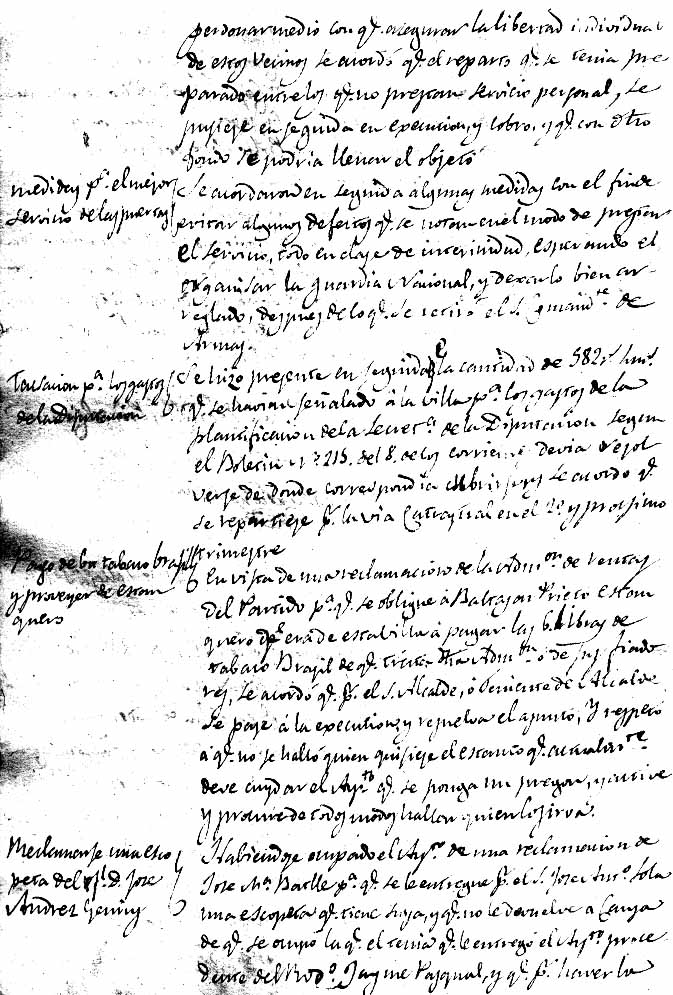 perdonar medio con qe. asegurar la libertad individual
de estos Vecinos se acordó qe. el reparto qe. se tenia pre-
parado entre los qe. no prestan servicio personal, se
pusiese en seguida en execucion, y cobro, y qe. con otro
fondo se podria llenar el objeto
medidas pa. el mejor
servicio de las puertas
Se acordaron en seguida algunas medidas con el fin de
evitar algunos defectos qe. se notan en el modo de prestar
el servicio, todo en clase de interinidad, esperando el
organisar la guardia Nacional, y dexarlo bien ar-
reglado, despues de lo qe. se retiró el S. Comandte. de
Armas.
Tassacion pa. los gastos
de la Diputacion
Se hizo presente en seguida la cantidad de 582 rs.
qe. se havian señalado à la Villa pa. los gastos de la
plantificacion de la Secreta. de la Diputacion segun
el Boletin nº 215. del 8. de los corrientes devia resol
verse de donde correspondia cubrirse y se acordo qe.
se repartiese pr. la via Catastral en el 2º. y proximo
trimestre
Pago de los tabaco brasil
y proveyer de estan
quero
En vista de una reclamacion de la Admon. de rentas
del Partido pa. qe. se obligue à Baltasar Prieto estan
quero qe. era de esta Villa à pagar las 6. libras de
tabaco Brasil de qe. trata dha Admon. ó de sus fiado
res, se acordó qe. pr. el S. Alcalde, ó Teniente de Alcalde
se pase à la execution, y resuelva el apunto, Y respeto
à qe. no se halló quien quisiese el estanco qe.
deve cuydar el Ayto. qe. se ponga un pregon, y active
y procure de todos modos hallar quien lo sirva.
Reclamarse una esco
peta del D. Jose
Andres
Habiendose ocupado el Ayto. de una reclamacion de
Jose Ma. Batlle pa. qe. se le entregue pr. el S. Jose Anto. Sola
una escopeta qe. tiene suya, y qe. no le devuelve a Causa
de qe. se ocupo la qe. el tenia qe. le entregó el Ayto. proce
dente del Jayme Pasqual, y qe. pr. haverla